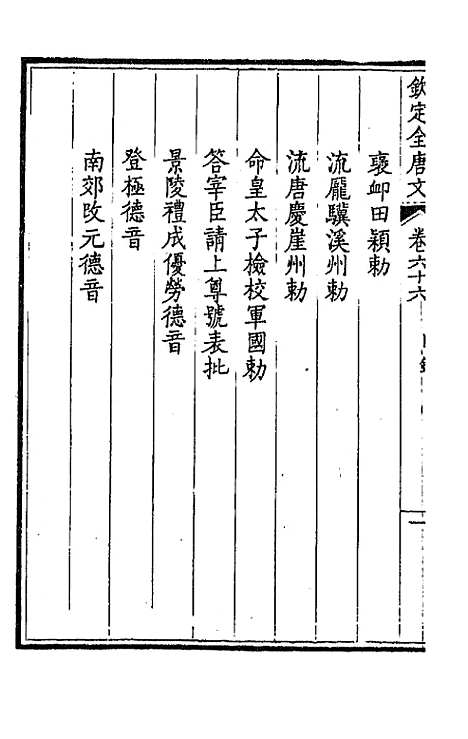 欽定全唐文 卷六十六 目錄 一
裦卹田穎勅
流龐驥溪州勅
流唐慶崖州勅
命皇太子檢校軍國勅
答宰臣請上尊號表批
景陵禮成優勞德音
登極德音
南郊改元德音